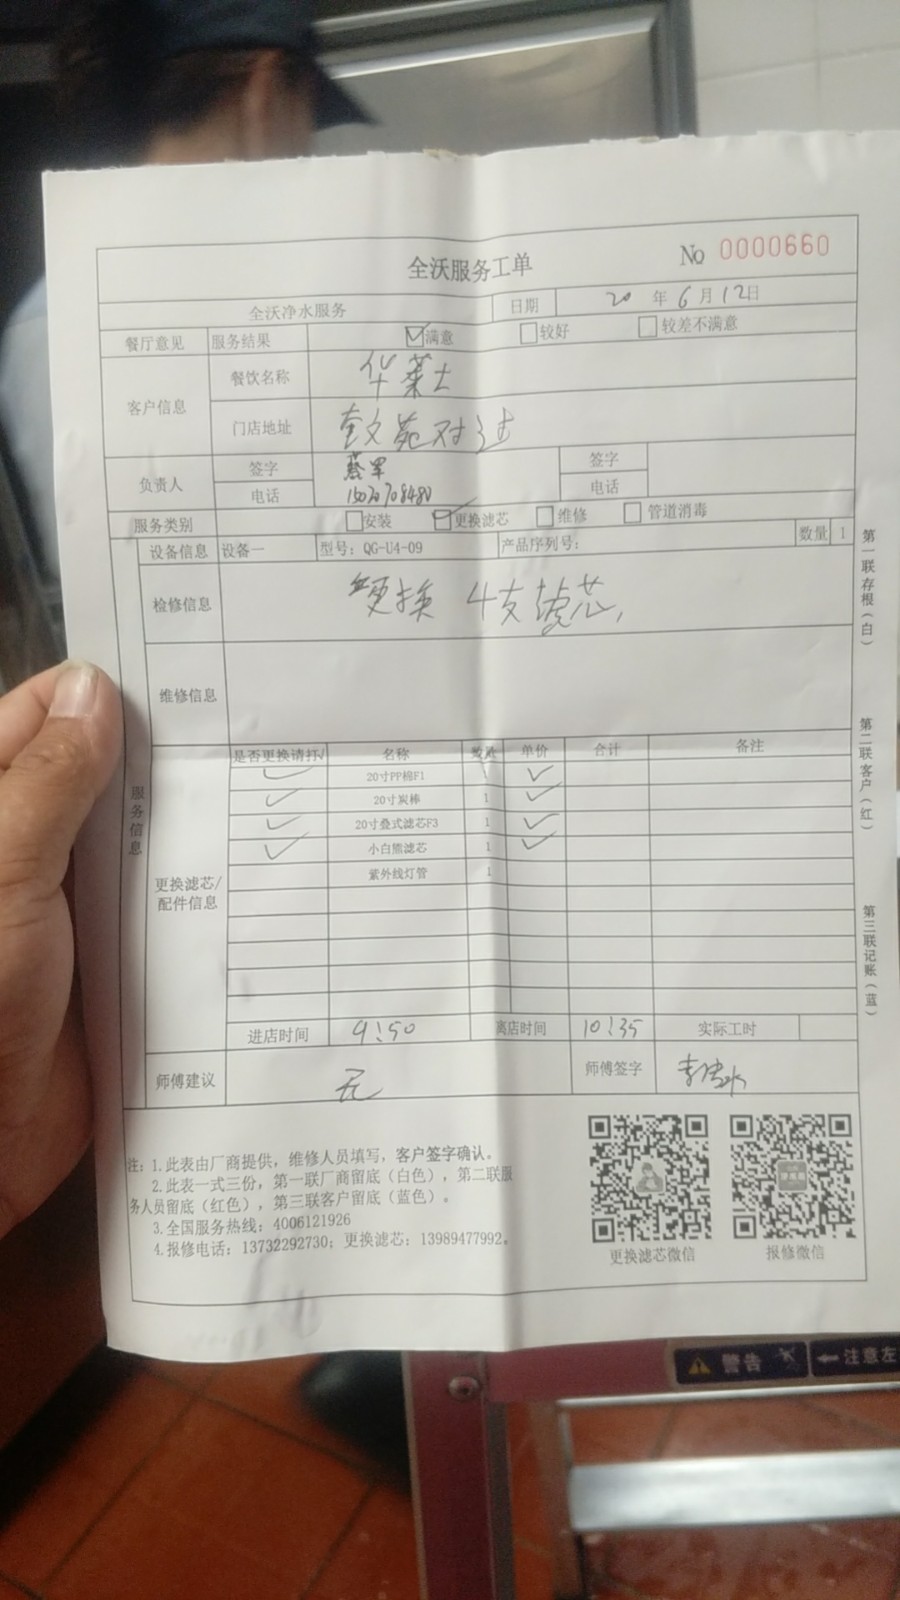 全沃服务工单 No 0000660
全沃净水服务 日期 20 年 6 月 12 日
餐厅意见 服务结果 满意 较好 较差不满意
客户信息 餐饮名称 华莱士
门店地址 文苑对过
负责人 签字 签字
电话 电话
服务类别 安装 更换滤芯 维修 管道消毒
设备信息 设备一 型号：QG-U4-09 产品序列号： 数量 1
检修信息 更换 4支滤芯，
维修信息
服务信息
是否更换请打√ 名称 数量 单价 合计 备注
✓ 20寸PP棉F1 1 ✓
✓ 20寸炭棒 1 ✓
✓ 20寸叠式滤芯F3 1 ✓
✓ 小白熊滤芯 1 ✓
紫外线灯管 1
更换滤芯/
配件信息
进店时间 9:50 离店时间 10:35 实际工时
师傅建议 无 师傅签字
注：1.此表由厂商提供，维修人员填写，客户签字确认。
2.此表一式三份，第一联厂商留底（白色），第二联服
务人员留底（红色），第三联客户留底（蓝色）。
3.全国服务热线：4006121926
4.报修电话：13732292730；更换滤芯：13989477992。
更换滤芯微信 报修微信
第一联存根（白）
第二联客户（红）
第三联记账（蓝）
警告 注意左